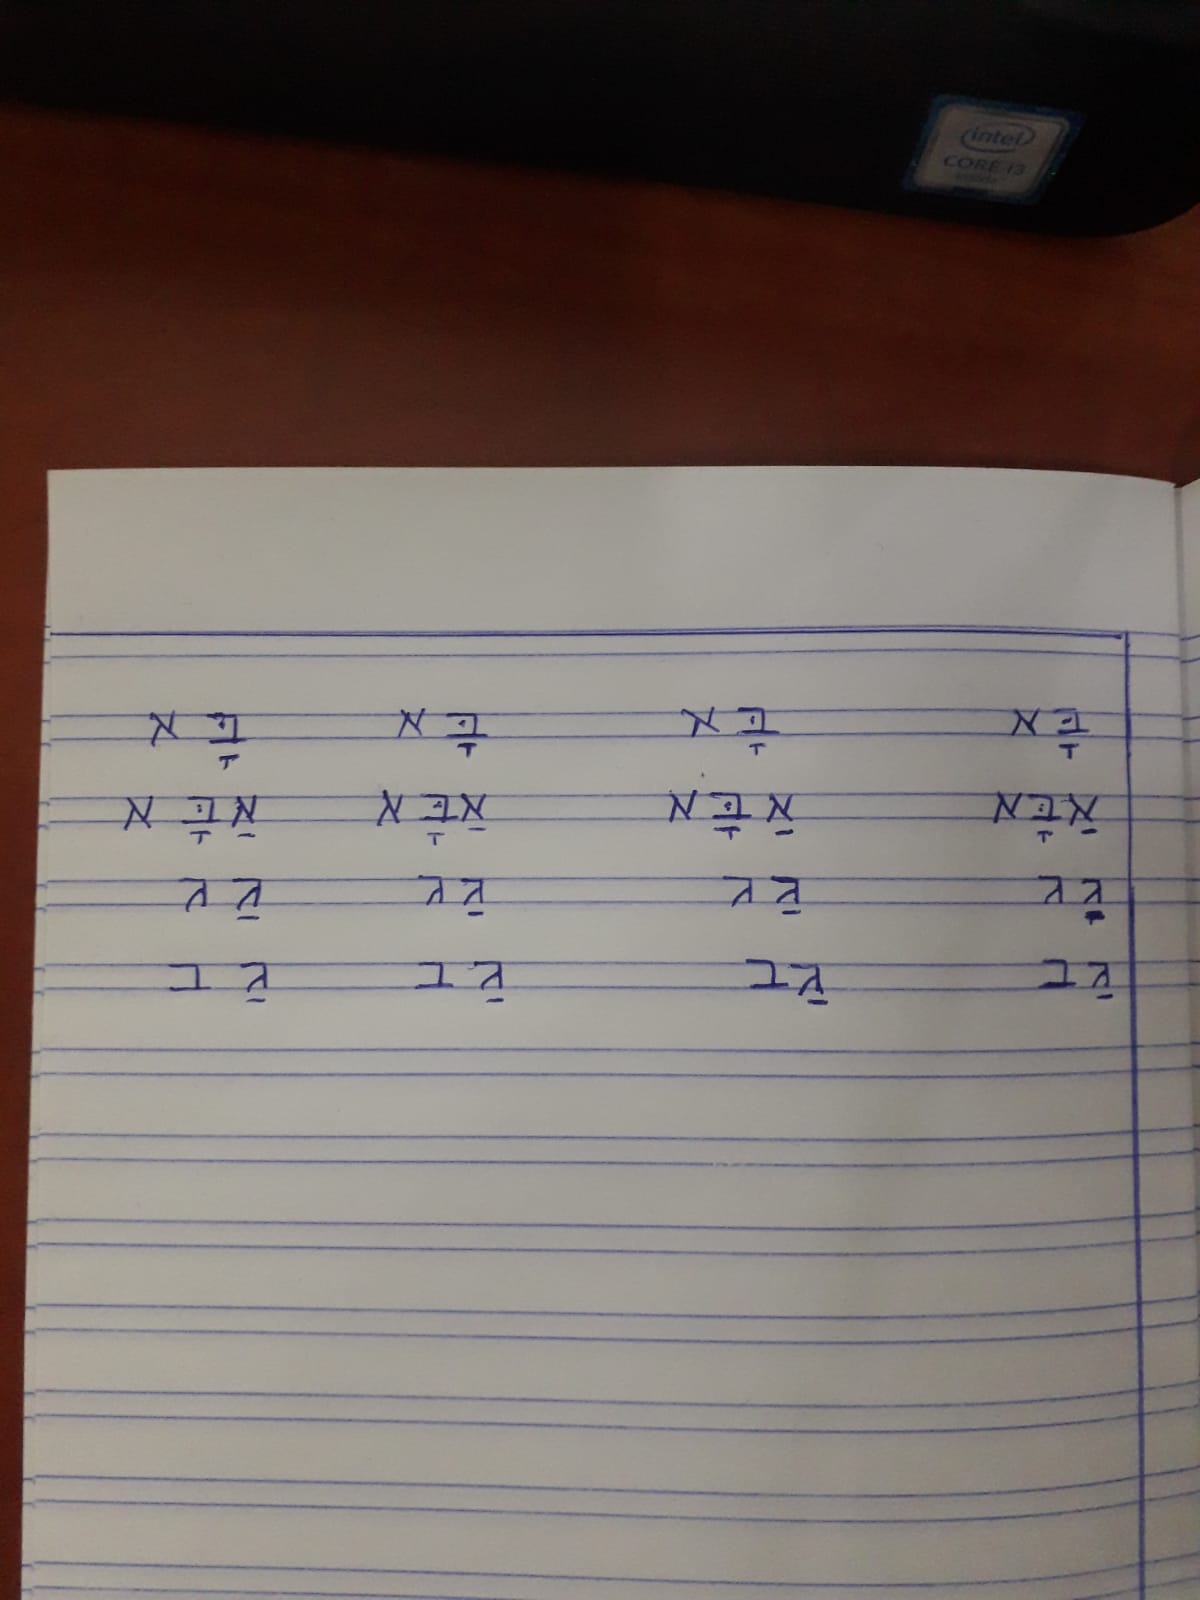 intel
CORE i3
בָּא בָּא בָּא בָּא
אַבָּא אַבָּא אַבָּא אַבָּא
גַג גַג גַג גַג
גַב גַב גַב גַב